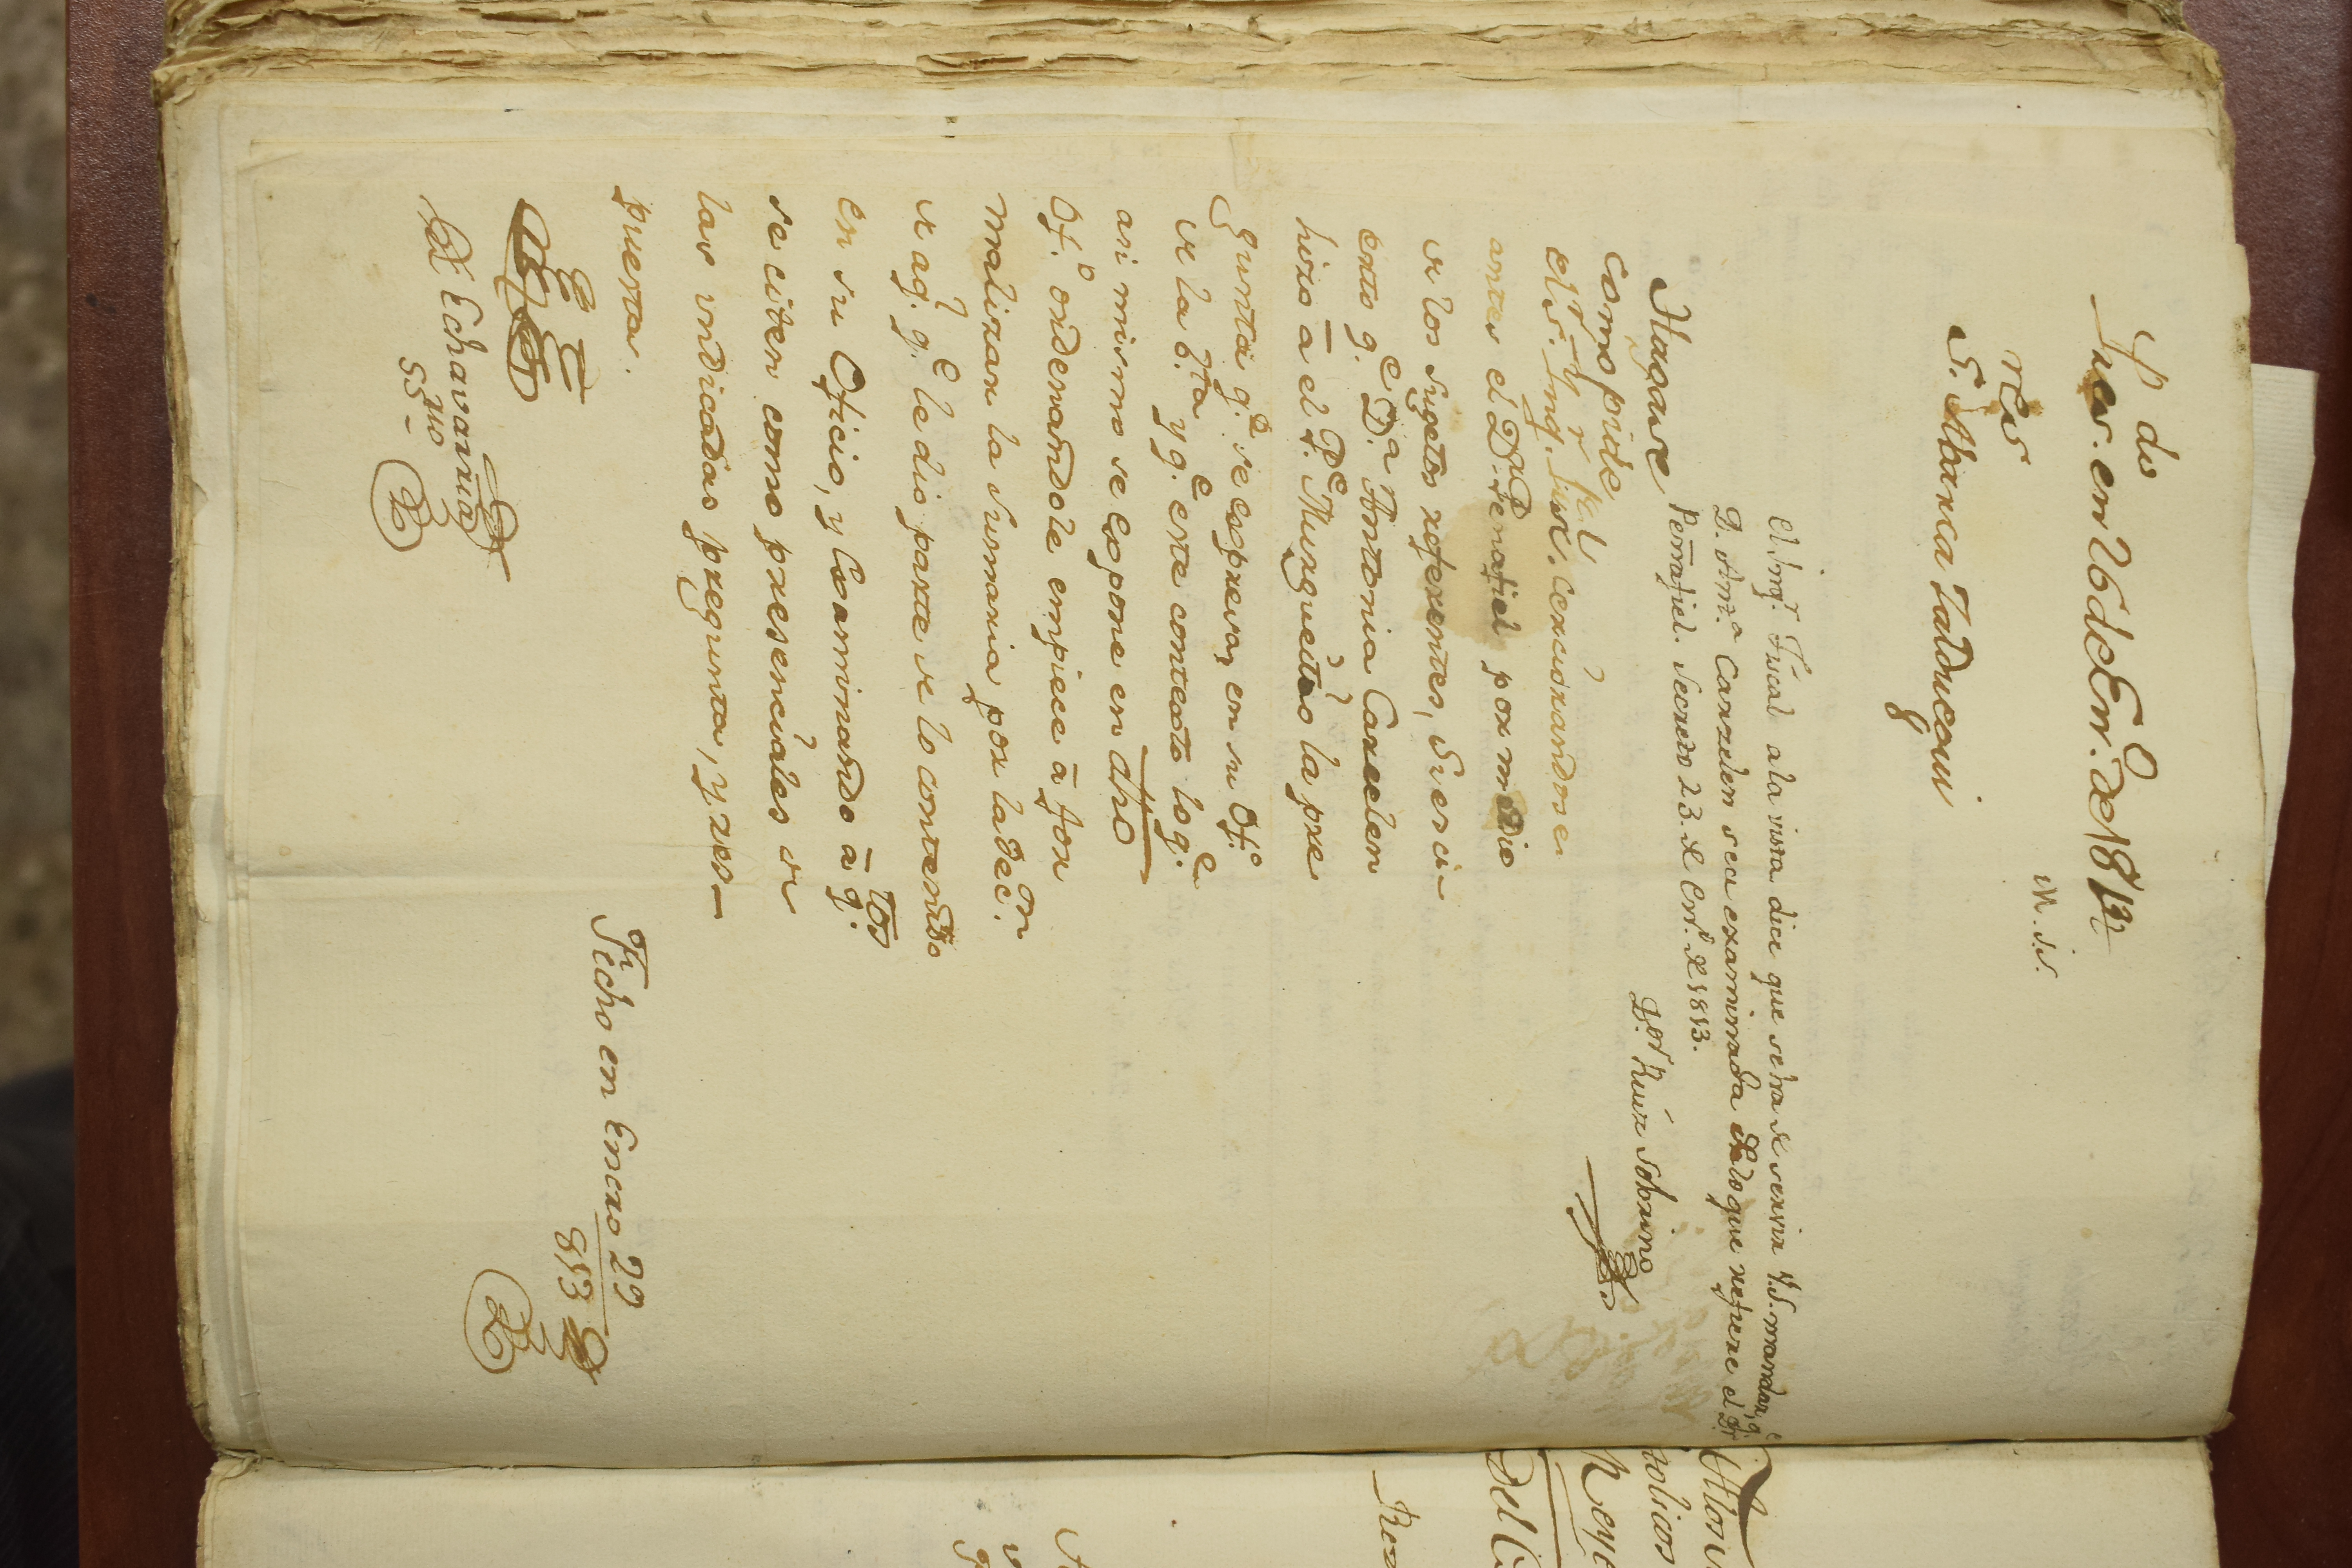 P.do
Pres. en 26 de En.o de 1813
res
S. Abarca Zalduegui
M. S.
El Inq.r Fiscal a la vista dice que se ha de servir V.S. mandar, q.e
D. Ant.a Carrelen sea examinada de lo que refiere el D.r
Penafiel. Secreto 23 de En.o de 1813.
D.or Ruiz Sobrino
Hagase
como pide
el S.r Inq.r Fiscal
antes el D. Penafiel por medio
de los sugetos referentes, si es ci-
erto q.e D.a Antonia Carrelen
hizo a el P.e Murgueitio la pre
gunta q.e se expresa en su Of.o
de la b.ta y q.e este contexto lo q.e
asi mismo se expone en dho
Of.o ordenandole empiece a for
malizar la sumaria por la dec.on
de aq.l q.e le dio parte de lo contenido
en su Oficio, y examinando a tos q.
se citen como presenciales de
las indicadas pregunta, y res-
puesta.
Echavarria
srio
SS-
Fecho en Enero 29
813